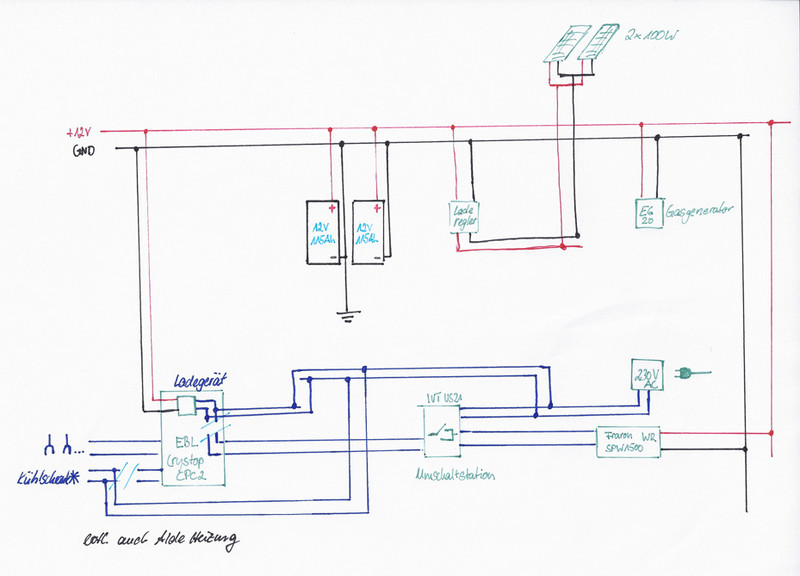 2x100W
+12V
GND
+
+
12V
115Ah
12V
115Ah
-
-
Lade
regler
EG
20
Gasgenerator
Ladegerät
IVT US21
230V
AC
EBL
Crystop
CPC2
...
Kühlschrank*
Fraron WR
SPW1500
Umschaltstation
evtl. auch Alde Heizung